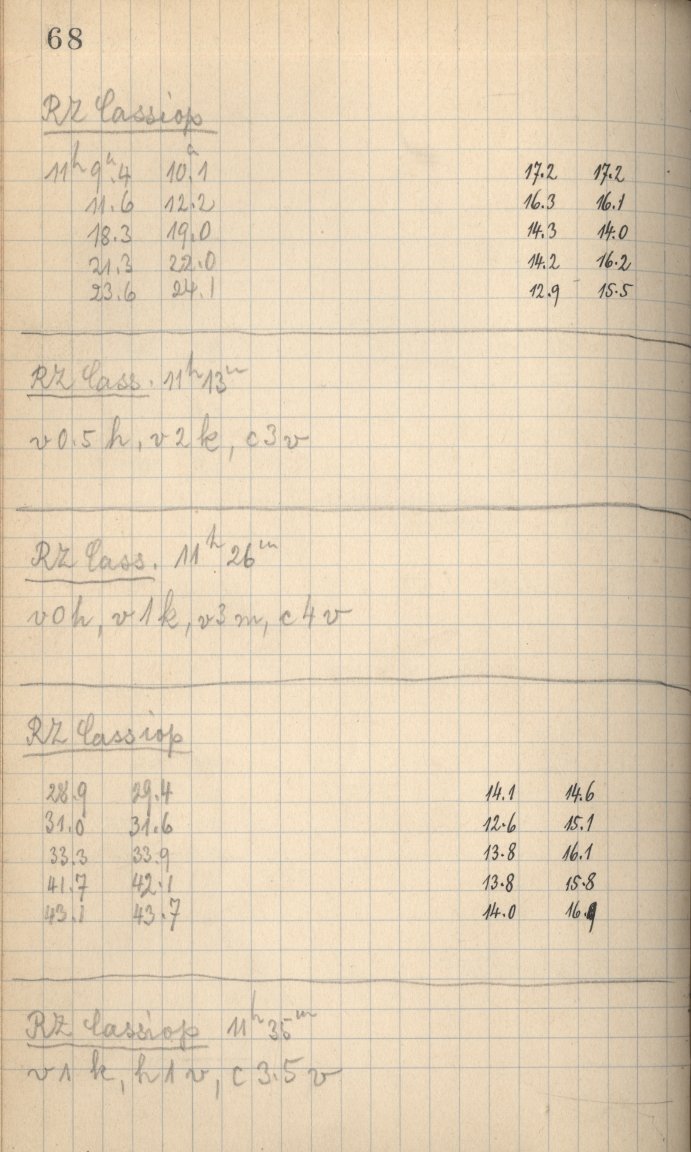 68
RZ Cassiop
11h 9m.4 10m.1 17.2 17.2
11.6 12.2 16.3 16.1
18.3 19.0 14.3 14.0
21.3 22.0 14.2 16.2
23.6 24.1 12.9 15.5
RZ Cass. 11h 13m
v 0.5 h, v 2 k, c 3 v
RZ Cass. 11h 26m
v 0 h, v 1 k, v 3 m, c 4 v
RZ Cassiop
28.9 29.4 14.1 14.6
31.0 31.6 12.6 15.1
33.3 33.9 13.8 16.1
41.7 42.1 13.8 15.8
43.1 43.7 14.0 16.9
RZ Cassiop 11h 35m
v 1 k, h 1 v, c 3.5 v